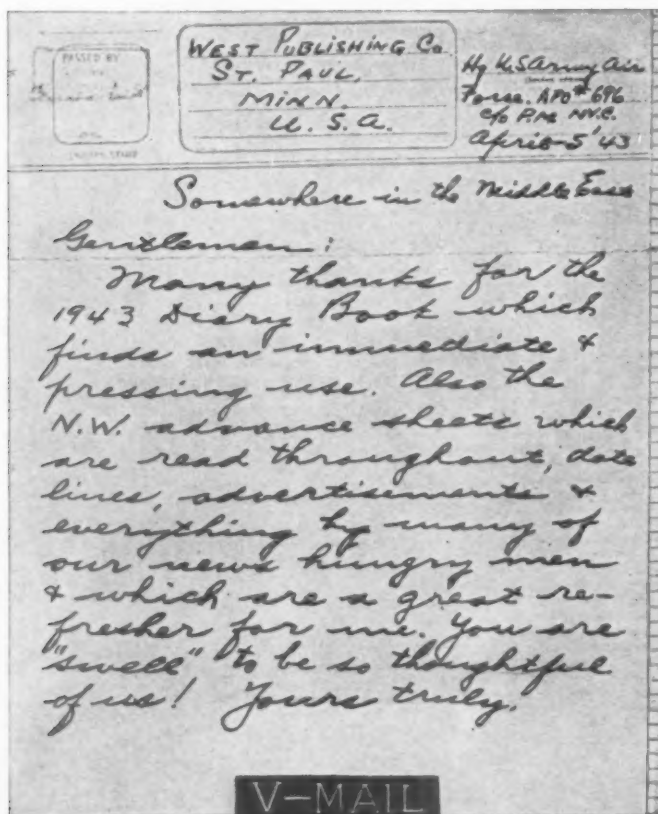 PASSED BY
WEST PUBLISHING Co
ST. PAUL,
MINN.
U. S. A.
Hq U.S Army Air
Force. APO # 696
c/o P.M. N.Y.C.
April-5'43
Somewhere in the Middle East
Gentlemen:
Many thanks for the
1943 Diary Book which
finds an immediate &
pressing use. Also the
N.W. advance sheets which
are read throughout, date
lines, advertisements &
everything by many of
our news hungry men
& which are a great re-
fresher for me. You are
"swell" to be so thoughtful
of us! Yours truly.
V-MAIL